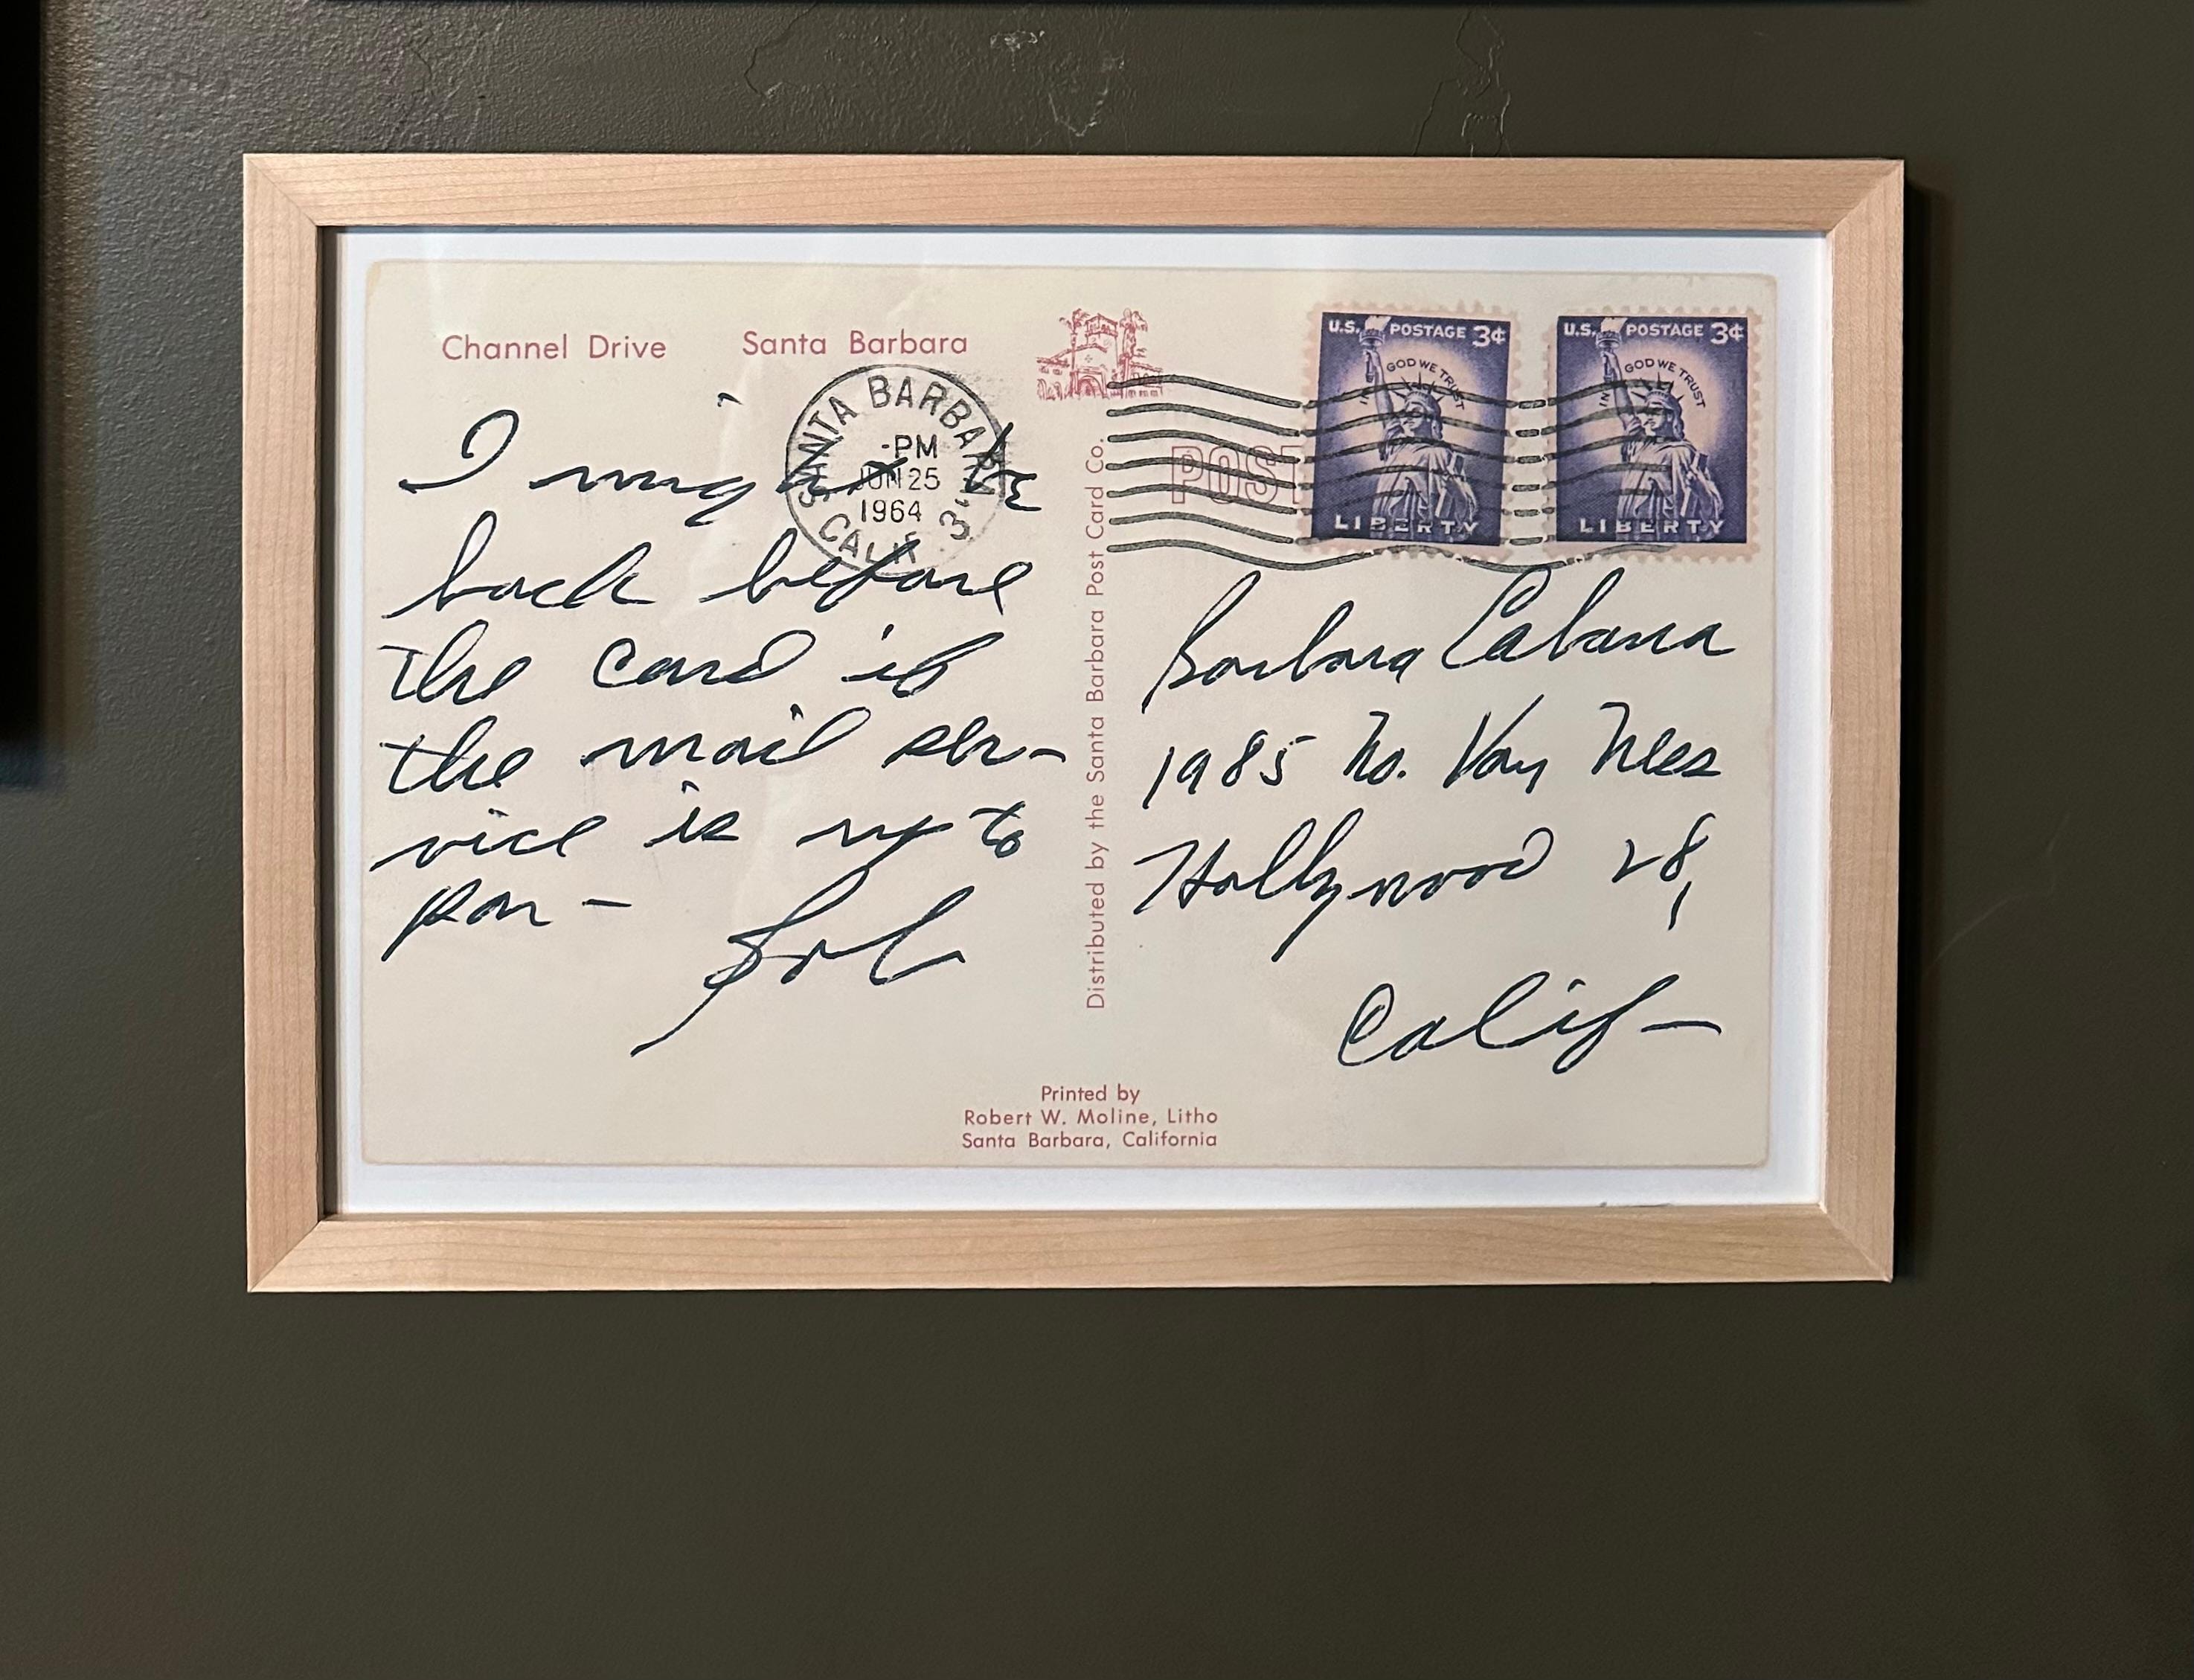 Channel Drive Santa Barbara
SANTA BARBARA
-PM
JUN 25
1964
CALIF.
I might be
back before
the card if
the mail ser-
vice is up to
par -
Bob
Distributed by the Santa Barbara Post Card Co.
POST
U.S. POSTAGE 3¢
IN GOD WE TRUST
LIBERTY
U.S. POSTAGE 3¢
IN GOD WE TRUST
LIBERTY
Barbara Cabana
1985 No. Van Ness
Hollywood 28,
Calif -
Printed by
Robert W. Moline, Litho
Santa Barbara, California